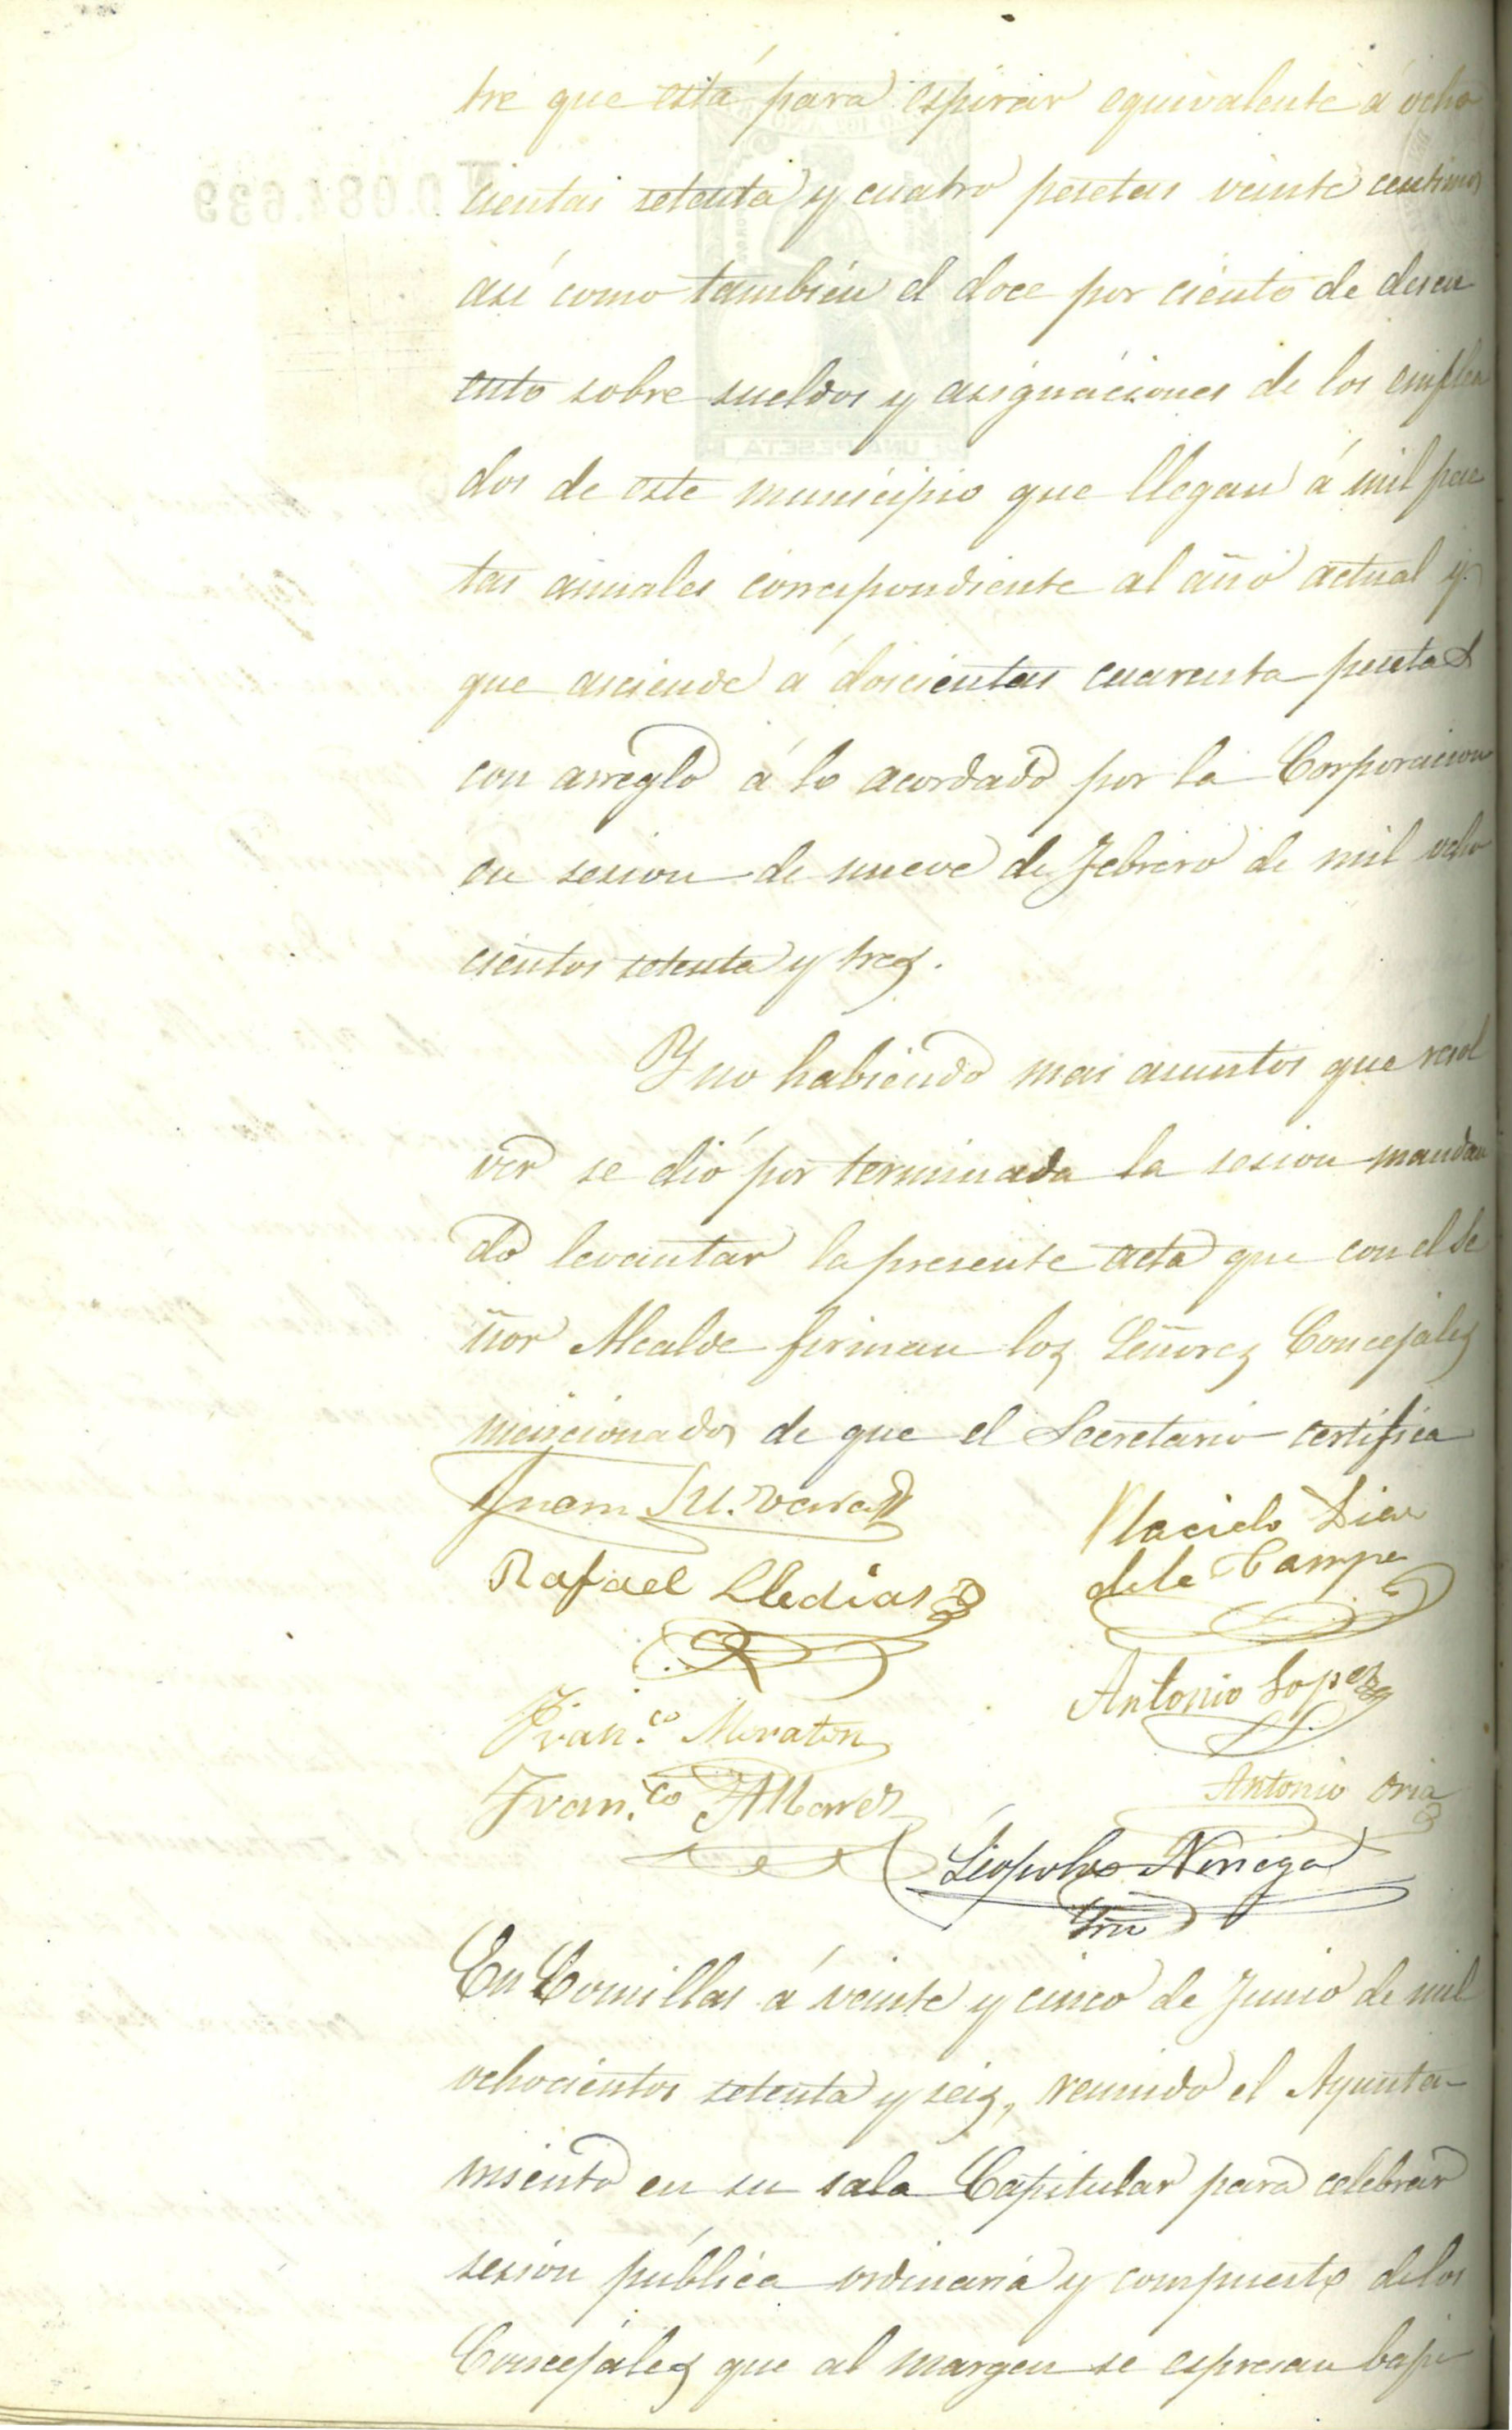 tre que está para espirar equivalente á ocho
cientas setenta y cuatro pesetas veinte centimos
así como también el doce por ciento de descu
ento sobre sueldos y asignaciones de los emplea
dos de este municipio que llegan á mil pese
tas anuales correspondiente al año actual y
que asciende á doscientas cuarenta pesetas
con arreglo á lo acordado por la Corporacion
en sesion de nueve de Febrero de mil ocho
cientos setenta y tres.
Y no habiendo mas asuntos que resol
ver se dió por terminada la sesion mandan
do levantar la presente acta que con el Se
ñor Alcalde firman los Señores Concejales
mencionados de que el Secretario certifica
Juan
Placido Diaz
de la Campa
Rafael Lledias
Antonio Lopez
Fran.co Moraton
Antonio Oria
Fran.co
Leopoldo Noriega
Srio
En Comillas á veinte y cinco de Junio de mil
ochocientos setenta y seis, reunido el Ayunta-
miento en su sala Capitular para celebrar
sesión pública ordinaria y compuesto de los
Concejales que al margen se espresan bajo
UNA PESETA